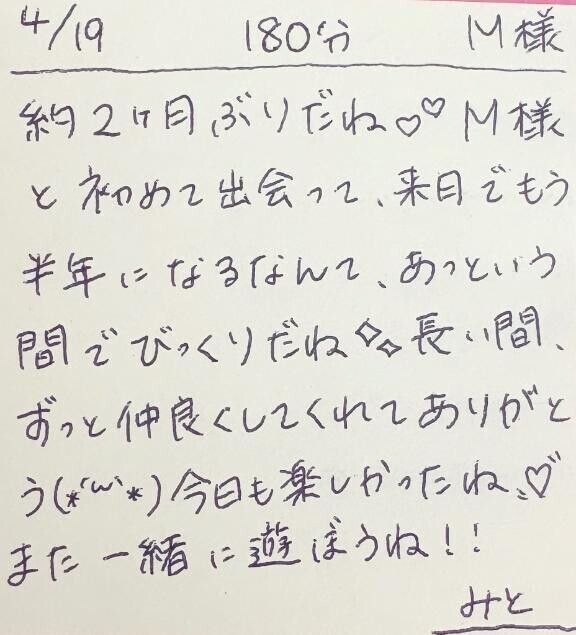 4/19 180分 M様
約2ヶ月ぶりだね♡♡M様
と初めて出会って、来月でもう
半年になるなんて、あっという
間でびっくりだね✧✧長い間、
ずっと仲良くしてくれてありがと
う(*´ω`*)今日も楽しかったね♡
また一緒に遊ぼうね!!
みと